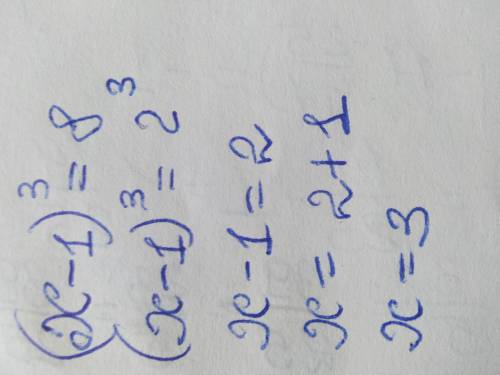 (x-1)³=8
(x-1)³=2³
x-1=2
x=2+1
x=3